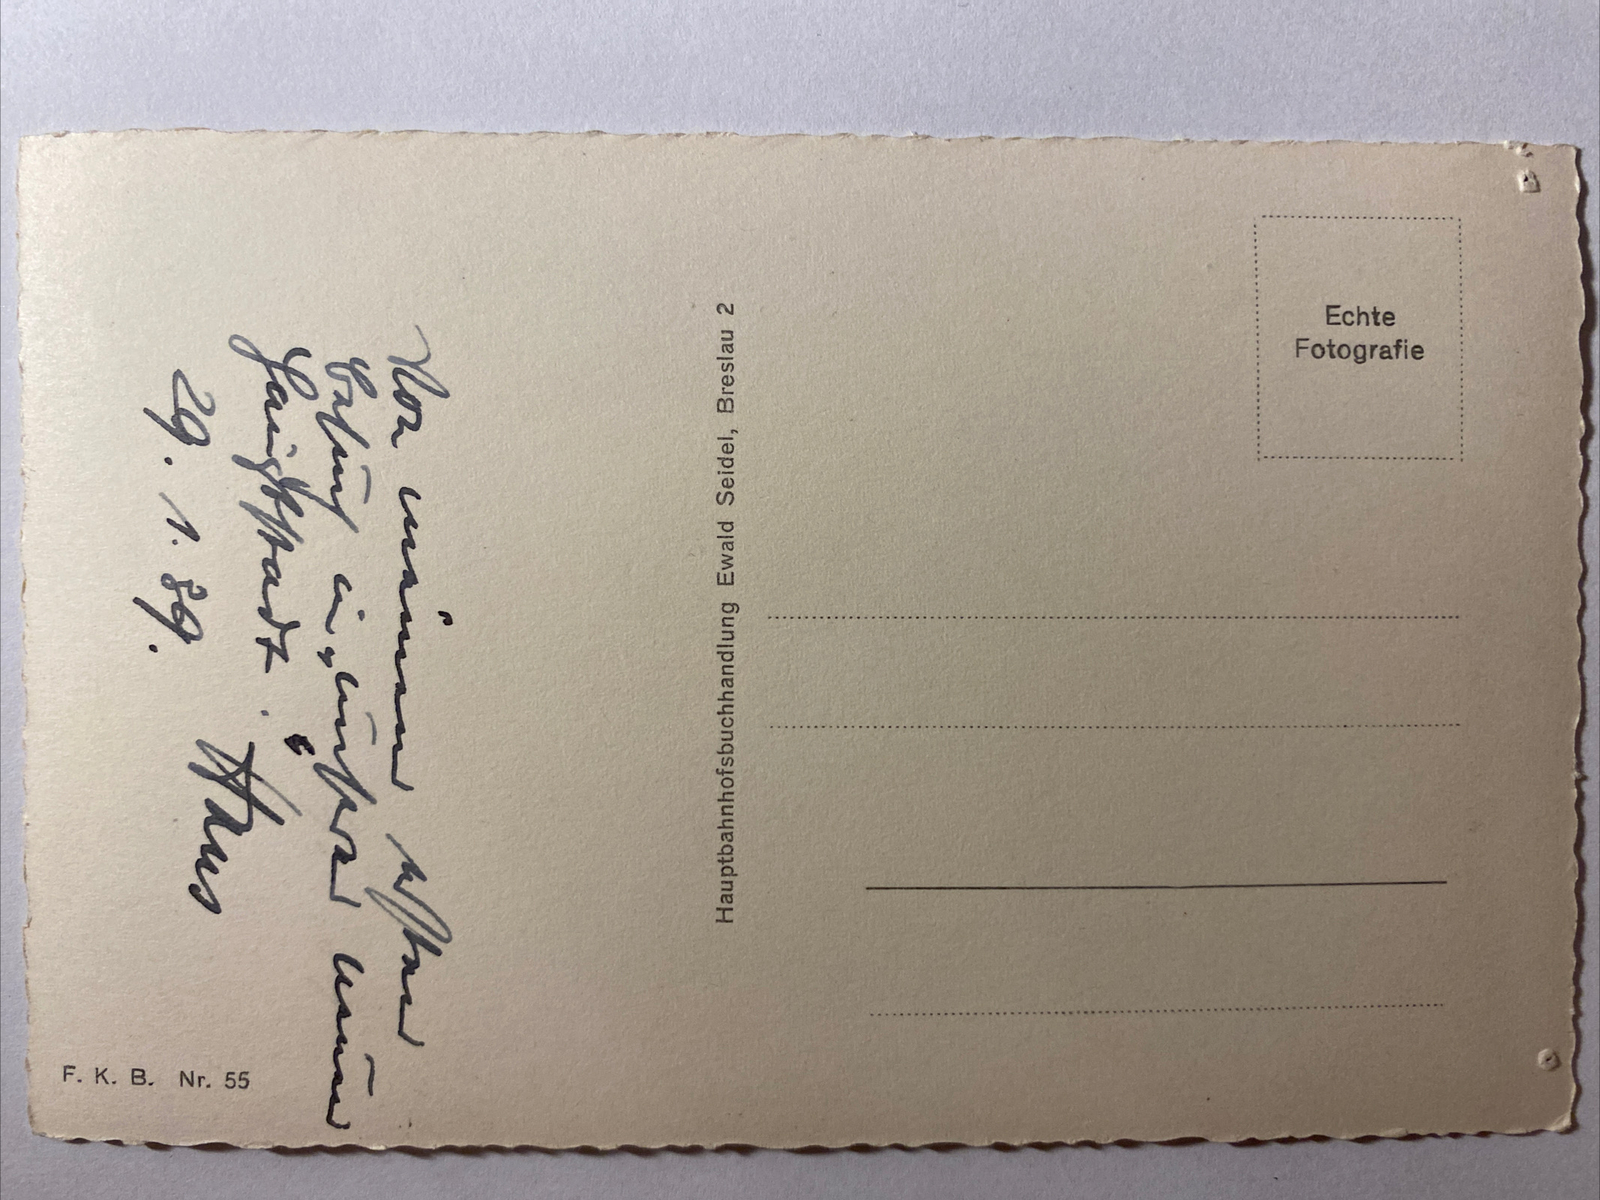 Von meinem ersten
Besuch in unserer neuen
29. 1. 39. Hans
F. K. B. Nr. 55
Hauptbahnhofsbuchhandlung Ewald Seidel, Breslau 2
Echte
Fotografie